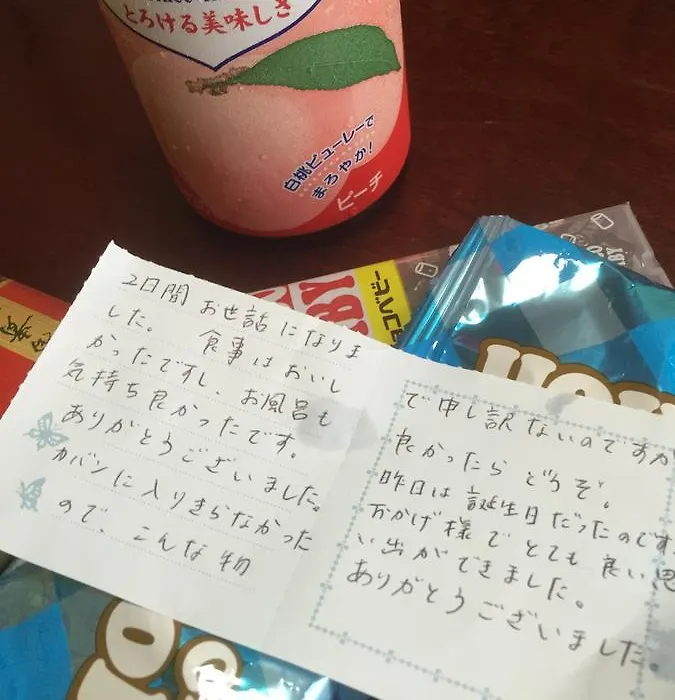 とろける美味しさ
白桃ピューレーで
まろやか!
ピーチ
2日間 お世話になりま
した。 食事はおいし
かったですし、お風呂も
気持ち良かったです。
ありがとうございました。
カバンに入りきらなかった
ので、こんな物
で申し訳ないのですが
良かったら どうぞ。
昨日は誕生日だったのです。
おかげ様でとても良い思
い出ができました。
ありがとうございました。